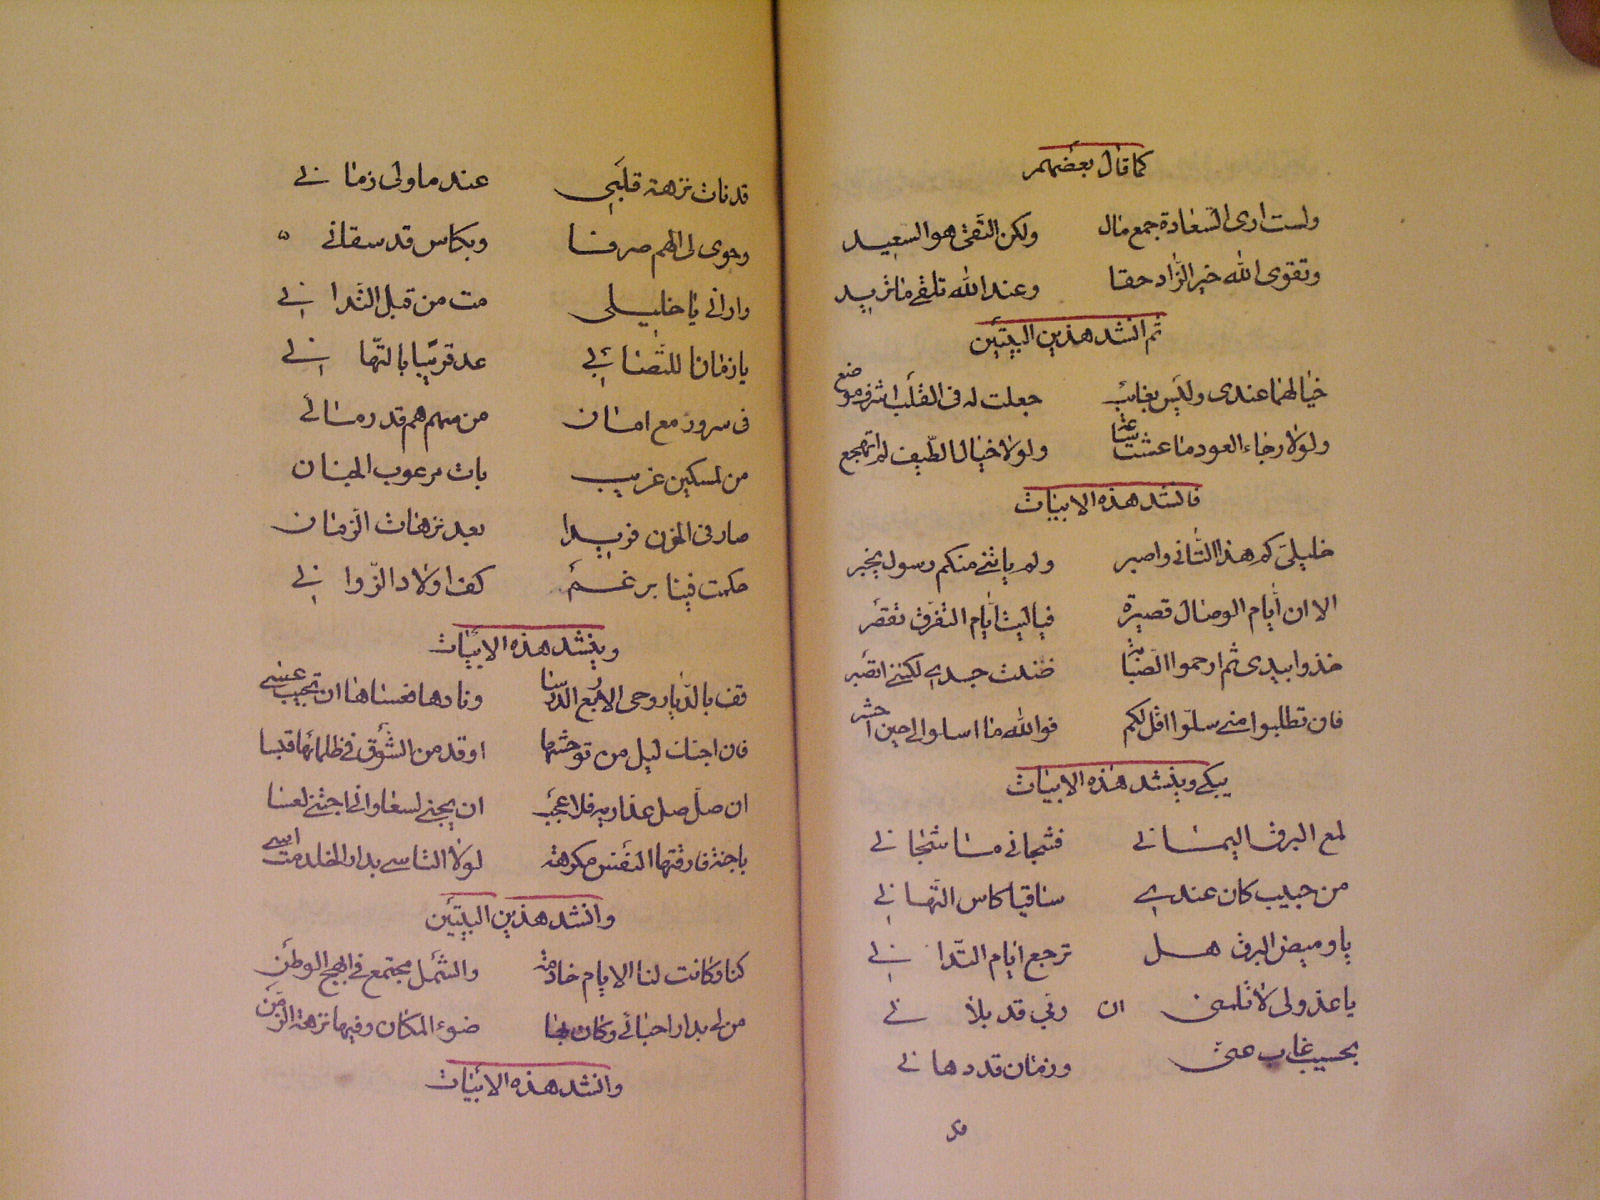 كما قال بعضهم
ولست ارى السّعادة جمع مال ولكن التّقى هو السّعيد
وتقوى الله خير الزّاد حقا وعند الله تلقى ما تريد
ثم انشد هذين البيتين
خيالها عندى وليس بغائب جعلت له فى القلب اشرف موضع
ولولا رجاء العود ما عشت ساعة ولولا خيال الطّيف لم اتهجع
فانشد هذه الابيات
خليلىّ كم هذا التّانى واصبر ولم ياتنى منكم رسول يخبر
الا ان ايّام الوصال قصيرة فياليث ايّام التفرّق تقصر
خذوا بيدى ثم ارحموا لصبابتى
فان تطلبوا منى سلوّا اقل لكم فوالله ما اسلوا الى حين احشر
يبكى وينشد هذه الابيات
لمع البرق اليمانى فشجانى ما شجانى
من حبيب كان عندى ساقيا كاس التهانى
يا وميض البرق هل ترجع ايّام التّدانى
يا عذولى لا تلمنى ان ربّى قد بلانى
بحبيب غاب عنّى وزمان قد دهانى
قد نات نزهة قلبى عند ما ولى زمانى
وحوى لى الهم صرفا وبكاس قد سقانى
وارانى يا خليلى مت من قبل التّدانى
يا زمانا للتّصابى عد قريبا بالتّهانى
فى سرور مع امان من سهم هم قد رمانى
من لمسكين غريب بات مرعوب الجنان
صار فى الحزن فريدا بعد نزهات الزّمان
حكمت فينا برغم كف اولاد الزّوانى
وينشد هذه الابيات
قف بالدّيار وحى الاربع الدّرسا ونادها فعساها ان تجيب عسى
فان اجنك ليل من توحشها اوقد من الشّوق فى ظلمائها قبسا
ان صلّ صل عذاريه فلا عجب ان يجنى لسعا وانى اجتنى لعسا
يا جنة فارقتها النّفس مكرهة لولا التاسى بدار الخلد مت اسى
وانشد هذين البيتين
كنا وكانت لنا الايام خادمة والشّمل مجتمع فى ابهج الوطن
من لى بدار احبائى وكان بها ضوء المكان وفيها نزهة الزّمن
وانشد هذه الابيات